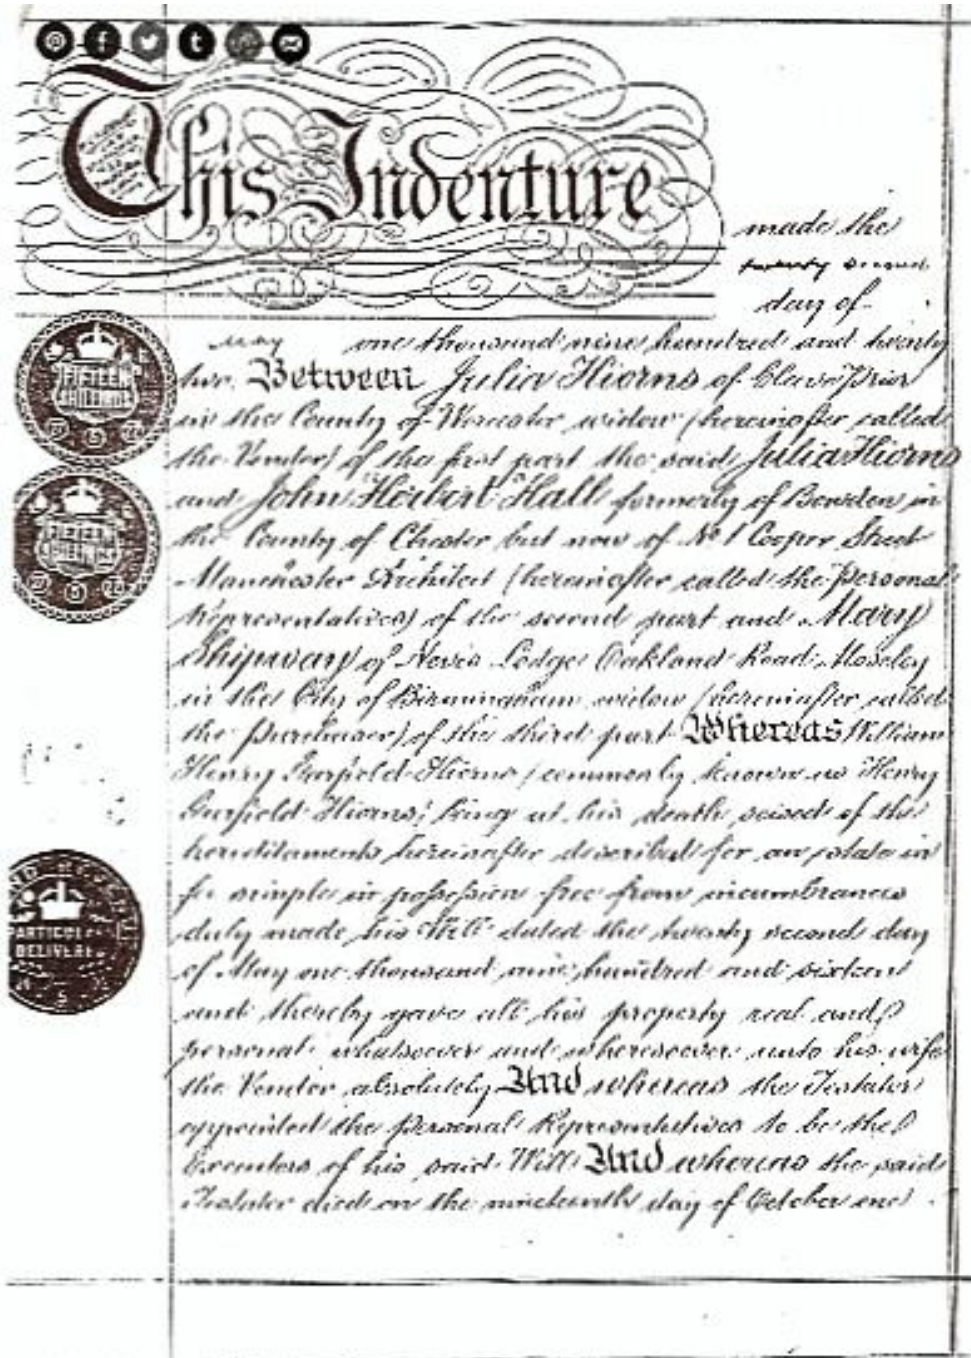 This Indenture
made the
twenty second
day of
May one thousand nine hundred and twenty
two Between Julia Hiorns of Cleeve Prior
in the County of Worcester widow (hereinafter called
the Vendor) of the first part the said Julia Hiorns
and John Herbert Hall formerly of Bowdon in
the County of Chester but now of No 1 Cooper Street
Manchester Architect (hereinafter called the Personal
Representatives) of the second part and Mary
Shipway of Nevis Lodge Oakland Road Moseley
in the City of Birmingham widow (hereinafter called
the Purchaser) of the third part Whereas William
Henry Hiorns (commonly known as Henry
Hiorns) being at his death seised of the
hereditaments hereinafter described for an estate in
fee simple in possession free from incumbrances
duly made his Will dated the twenty second day
of May one thousand nine hundred and sixteen
and thereby gave all his property real and
personal whatsoever and wheresoever unto his wife
the Vendor absolutely And whereas the Testator
appointed the Personal Representatives to be the
Executors of his said Will And whereas the said
Testator died on the nineteenth day of October one
FIFTEEN
SHILLINGS
FIFTEEN
SHILLINGS
PARTICULARS
DELIVERED